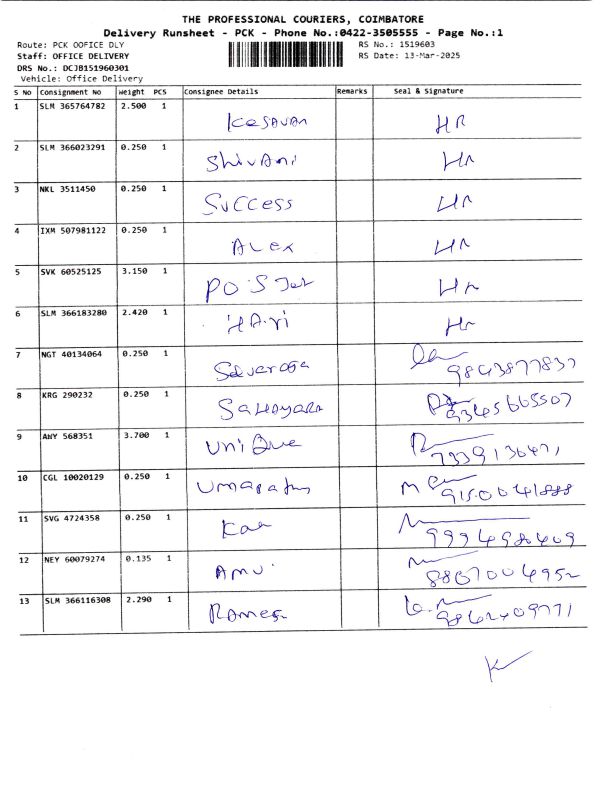 THE PROFESSIONAL COURIERS, COIMBATORE
Delivery Runsheet - PCK - Phone No.:0422-3505555 - Page No.:1
Route: PCK OOFICE DLY RS No.: 1519603
Staff: OFFICE DELIVERY RS Date: 13-Mar-2025
DRS No.: DCJB151960301
Vehicle: Office Delivery
S No Consignment No Weight PCS Consignee Details Remarks Seal & Signature
1 SLM 365764782 2.500 1 Kesavan HR
2 SLM 366023291 0.250 1 Shivani HR
3 NKL 3511450 0.250 1 Success HR
4 IXM 507981122 0.250 1 ALex HR
5 SVK 60525125 3.150 1 HR
6 SLM 366183280 2.420 1 HARi Hr
7 NGT 40134064 0.250 1 9843877837
8 KRG 290232 0.250 1 9345665507
9 AMY 568351 3.700 1 UniQue
10 CGL 10020129 0.250 1 9150041888
11 SVG 4724358 0.250 1 9994980409
12 NEY 60079274 0.135 1 8867004952
13 SLM 366116308 2.290 1 Rames 9862409771